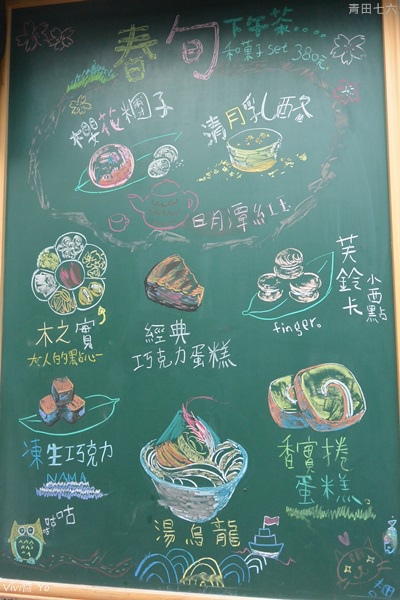 青田七六
春旬
下午茶....
和菓子set 380元
櫻花糰子
清月乳酪
日月潭紅玉
木之實
大人的點心
經典
巧克力蛋糕
芙鈴卡
小西點
finger。
凍生巧克力
NAMA
湯烏龍
香賓捲
蛋糕
咕咕